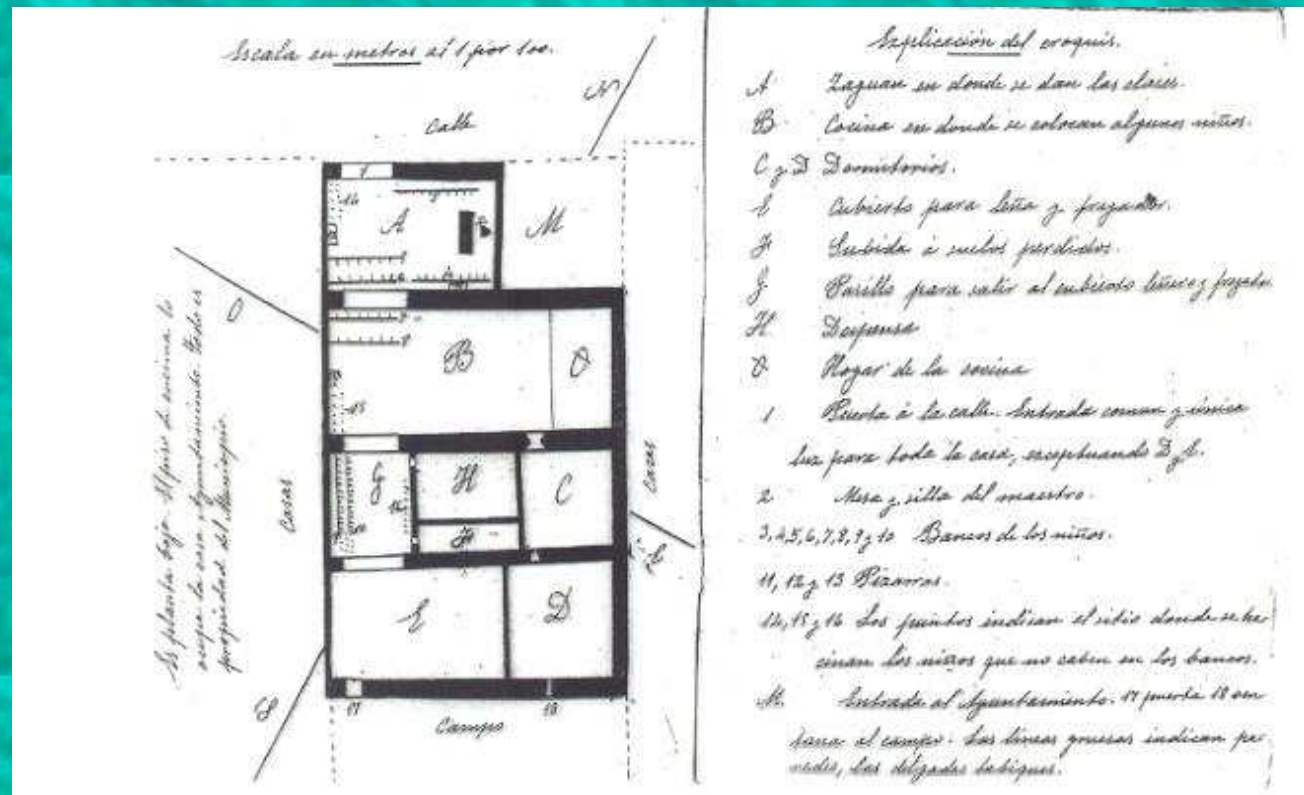 Escala en metros al 1 por 100.
N
Calle
1
3
14
A
2
M
O
B
O
15
Casas
Casas
G
H
C
16
F
E
E
D
S
17
18
Campo
Es planta baja. El piso de encima lo
ocupa la casa Ayuntamiento. Todo es
propiedad del Municipio.
Explicación del croquis.
A Zaguan en donde se dan las clases.
B Cocina en donde se colocan algunos niños.
C y D Dormitorios.
E Cubierto para leña y fregador.
F Subida á suelos perdidos.
G Pasillo para salir al cubierto leñero y fregador.
H Despensa
O Hogar de la cocina
1 Puerta á la calle. Entrada comun y única
luz para toda la casa, exceptuando D y E.
2 Mesa y silla del maestro.
3, 4, 5, 6, 7, 8, 9 y 10 Bancos de los niños.
11, 12 y 13 Pizarras.
14, 15 y 16 Los puntos indican el sitio donde se ha-
cinan los niños que no caben en los bancos.
M. Entrada al Ayuntamiento. 17 puerta 18 ven
tana al campo. Las líneas gruesas indican pa-
redes, las delgadas tabiques.